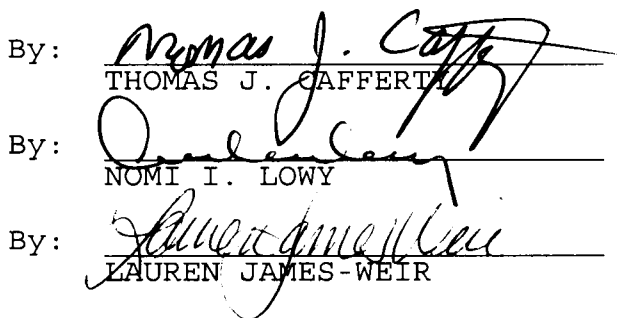 By: Thomas J. Cafferty
THOMAS J. CAFFERTY
By:
NOMI I. LOWY
By: Lauren James-Weir
LAUREN JAMES-WEIR